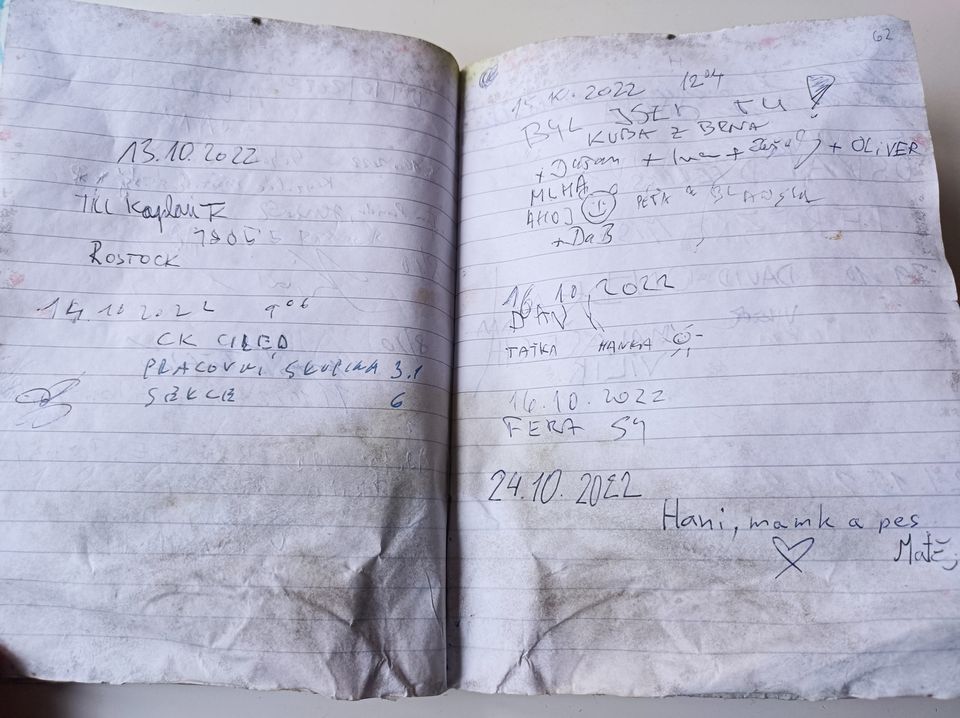 13.10.2022
Till Kaplan
ROSTOCK
14.10.2022 9⁰⁶
CK
PRACOVNÍ SKUPINA 3.1
SEKCE 6
62
15.10.2022 12⁰⁴
BYL JSEM TU !
KUBA Z BRNA
+ Dušan + + OLIVER
MLHA
AHOJ PÉŤA
+ DaB
16.10.2022
TAŤKA HANKA
16.10.2022
FERA
24.10.2022
Hani, mamk a pes
Matěj